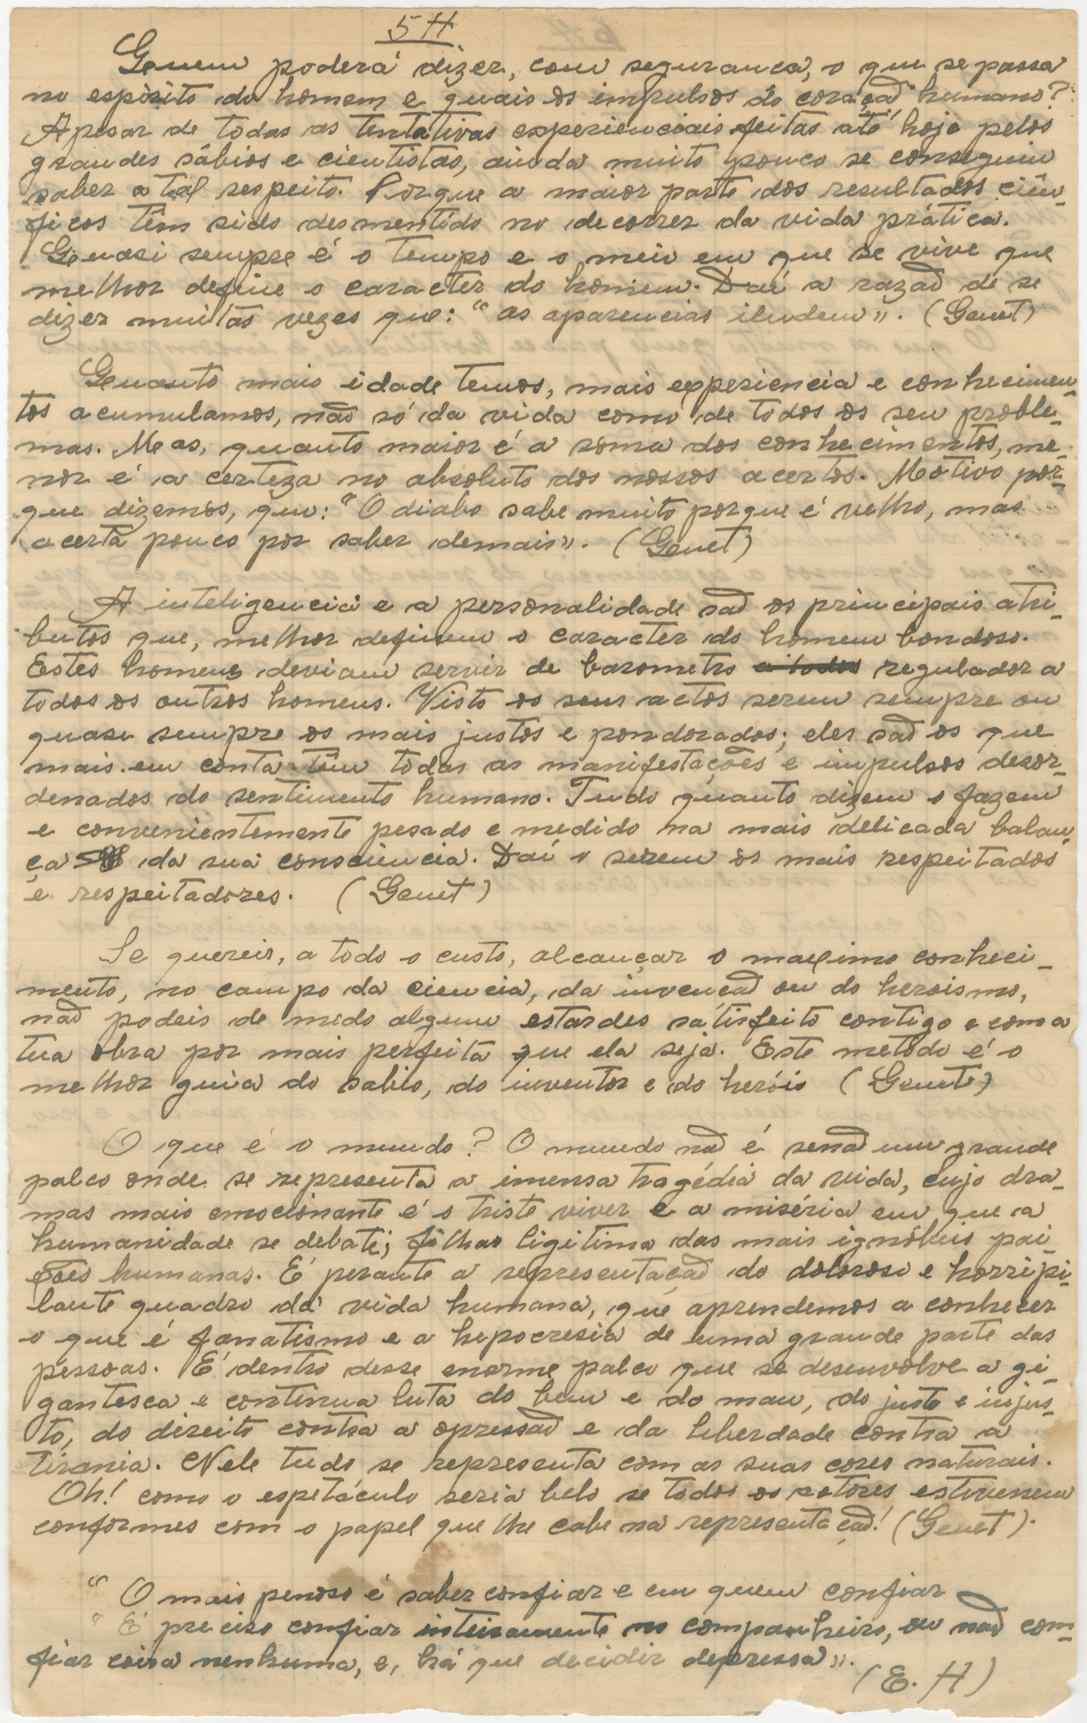 5 H
Quem poderá dizer, com seguranca, o que se passa
no espirito do homem e quais os impulsos do coração humano?
Apesar de todas as tentativas experienciais feitas até hoje pelos
grandes sábios e cientistas, ainda muito pouco se conseguiu
saber a tal respeito. Porque a maior parte dos resultados ciên-
ficos têm sido desmentido no decorrer da vida prática.
Quasi sempre é o tempo e o meio em que se vive que
melhor define o caracter do homem. Daí a razão de se
dizer muitas vezes que: "as aparencias iludem". (Genet)
Quanto mais idade temos, mais experiencia e conhecimen-
tos acumulamos, não só da vida como de todos os seu proble-
mas. Mas, quanto maior é a soma dos conhecimentos, me-
nor é a certeza no absoluto dos nossos acertos. Motivo por-
que dizemos, que: "O diabo sabe muito porque é velho, mas
acerta pouco por saber demais". (Genet)
A inteligencia e a personalidade são os principais atri-
butos que, melhor definem o caracter do homem bondoso.
Estes homens deviam servir de barometro a todos regulador a
todos os outros homens. Visto os seus actos serem sempre ou
quase sempre os mais justos e ponderados; eles são os que
mais em conta têm todas as manifestações e impulsos desor-
denados do sentimento humano. Tudo quanto dizem e fazem
e convenientemente pesado e medido na mais delicada balan-
ça da sua consciencia. Daí o serem os mais respeitados
e respeitadores. (Genet)
Se quereis, a todo o custo, alcançar o maximo conheci-
mento, no campo da ciencia, da invenção ou do heroismo,
não podeis de modo algum estardes satisfeito contigo e com a
tua obra por mais perfeita que ela seja. Este metodo é o
melhor guia do sabio, do inventor e do herói (Genet)
O que é o mundo? O mundo não é senão um grande
palco onde se representa a imensa tragédia da vida, cujo dra-
mas mais emocionante é o triste viver e a miséria em que a
humanidade se debate; filhas ligitima das mais ignóbeis pai-
xões humanas. É perante a representação do doloroso e horripi-
lante quadro da vida humana, que aprendemos a conhecer
o que é fanatismo e a hipocresia de uma grande parte das
pessoas. É dentro desse enorme palco que se desenvolve a gi-
gantesca e continua luta do bem e do mau, do justo e injus-
to, do direito contra a opressão e da liberdade contra a
tirania. Nele tudo se representa com as suas cores naturais.
Oh! como o espetáculo seria belo se todos os actores estivessem
conformes com o papel que lhe cabe na representação! (Genet).
"O mais penoso é saber confiar e em quem confiar
"É preciso confiar inteiramente no companheiro, ou não con-
fiar coisa nenhuma, e, há que decidir depressa".
(E. H)